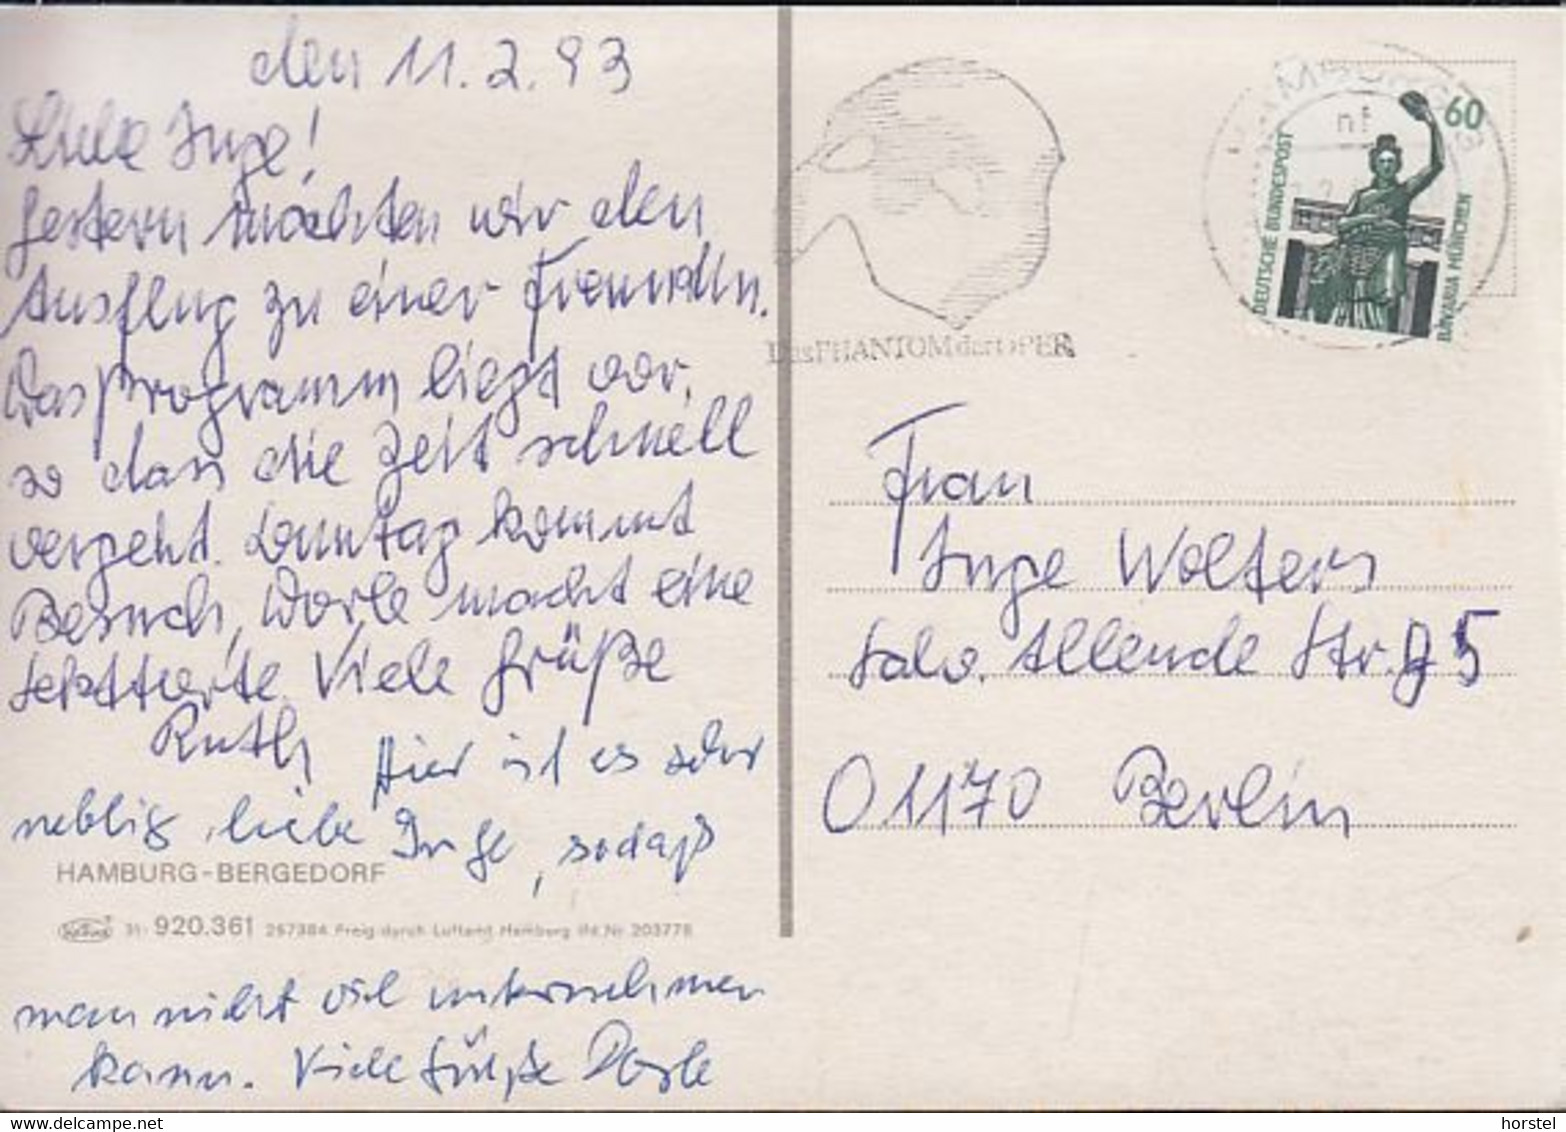 den 11.2.93
Liebe Inge!
Gestern machten wir den
Ausflug zu einer Freundin.
Das Programm liegt vor,
so dass die Zeit schnell
vergeht. Sonntag kommt
Besuch, Dorle macht eine
Sekttorte. Viele Grüße
Ruth
Hier ist es sehr
neblig, liebe Inge, sodaß
HAMBURG-BERGEDORF
31- 920.361 257384 Freig. durch Luftamt Hamburg lfd. Nr. 203778
man nicht viel unternehmen
kann. Viele Grüße Dorle
Das PHANTOM der OPER
HAMBURG
60
DEUTSCHE BUNDESPOST
BAVARIA MÜNCHEN
Frau
Inge Wolters
Salv. Allende Str. 5
O 1170 Berlin
horstel